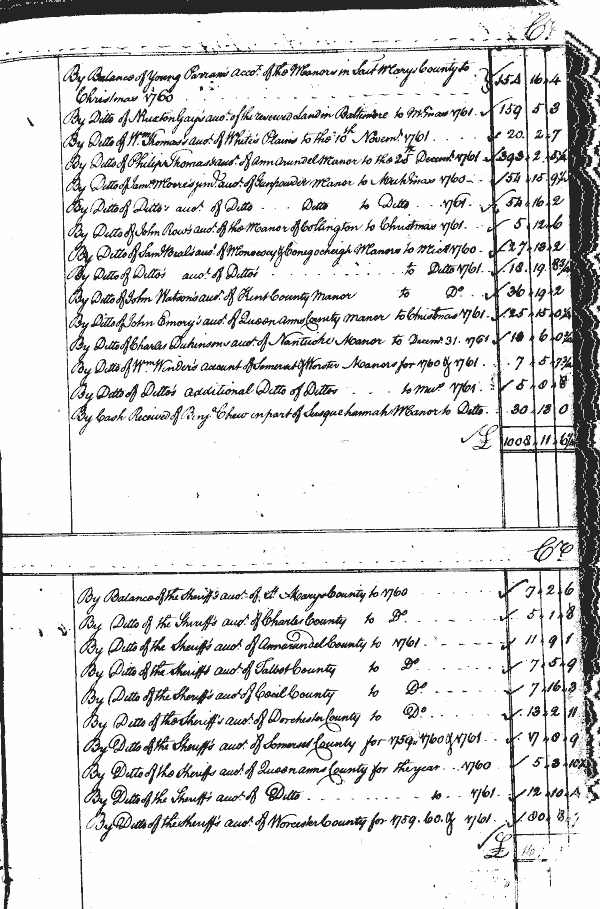 Cr
By Balance of Young Parran's Acco.t of the Manors in Saint Marys County to 154 16 4
Christmas 1760
By Ditto of Nuxton Gay's acco.t of the reserved Land in Baltimore to 1761 159 5 3
By Ditto of W.m Thomas's acco.t of White Plains to the 10th Novem.r 1761 20 2 7
By Ditto of Philip Thomas's acco.t of Ann Arundel Manor to the 25th Decem.r 1761 393 2
By Ditto of James Morris jun.r acco.t of Gunpowder Manor to 1760 54 15
By Ditto of Ditto's acco.t of Ditto Ditto to Ditto 1761 54 16 2
By Ditto of John Row's acco.t of the Manor of Collington to Christmas 1761 5 12 6
By Ditto of Sam.l Beal's acco.t of Monococy & Conegocheigh Manors to 1760 27 18 2
By Ditto of Ditto's acco.t of Ditto's to Ditto 1761 18 19
By Ditto of John Watson's acco.t of Kent County Manor to D.o 36 19 2
By Ditto of John Emory's acco.t of Queen Anns County Manor to Christmas 1761 25 15
By Ditto of Charles Dickinson's acco.t of Nanticoke Manor to Decem.r 31. 1761 6
By Ditto of W.m Winder's account of Somerset & Worster Manors for 1760 & 1761 7 5
By Ditto of Ditto's additional Ditto of Dittos to 1761 5 8 8
By Cash Received of Benj.a Chew in part of Susquehannah Manor to Ditto 30 18 0
£ 1008 11
C.r
By Balance of the Sheriff's acco.t of St. Marys County to 1760 7 2 6
By Ditto of the Sheriff's acco.t of Charles County to D.o 5 1 8
By Ditto of the Sheriff's acco.t of Annarundel County to 1761 11 9 1
By Ditto of the Sheriff's acco.t of Talbot County to D.o 7 5 9
By Ditto of the Sheriff's acco.t of Cecil County to D.o 7 16 3
By Ditto of the Sheriff's acco.t of Dorchester County to D.o 13 2 11
By Ditto of the Sheriff's acco.t of Somerset County for 1759, 1760 & 1761 17 8 9
By Ditto of the Sheriff's acco.t of Queen anns County for the year 1760 5 3
By Ditto of the Sheriff's acco.t of Ditto to 1761 12 10
By Ditto of the Sheriff's acco.t of Worcester County for 1759. 60. & 1761 80 8
£